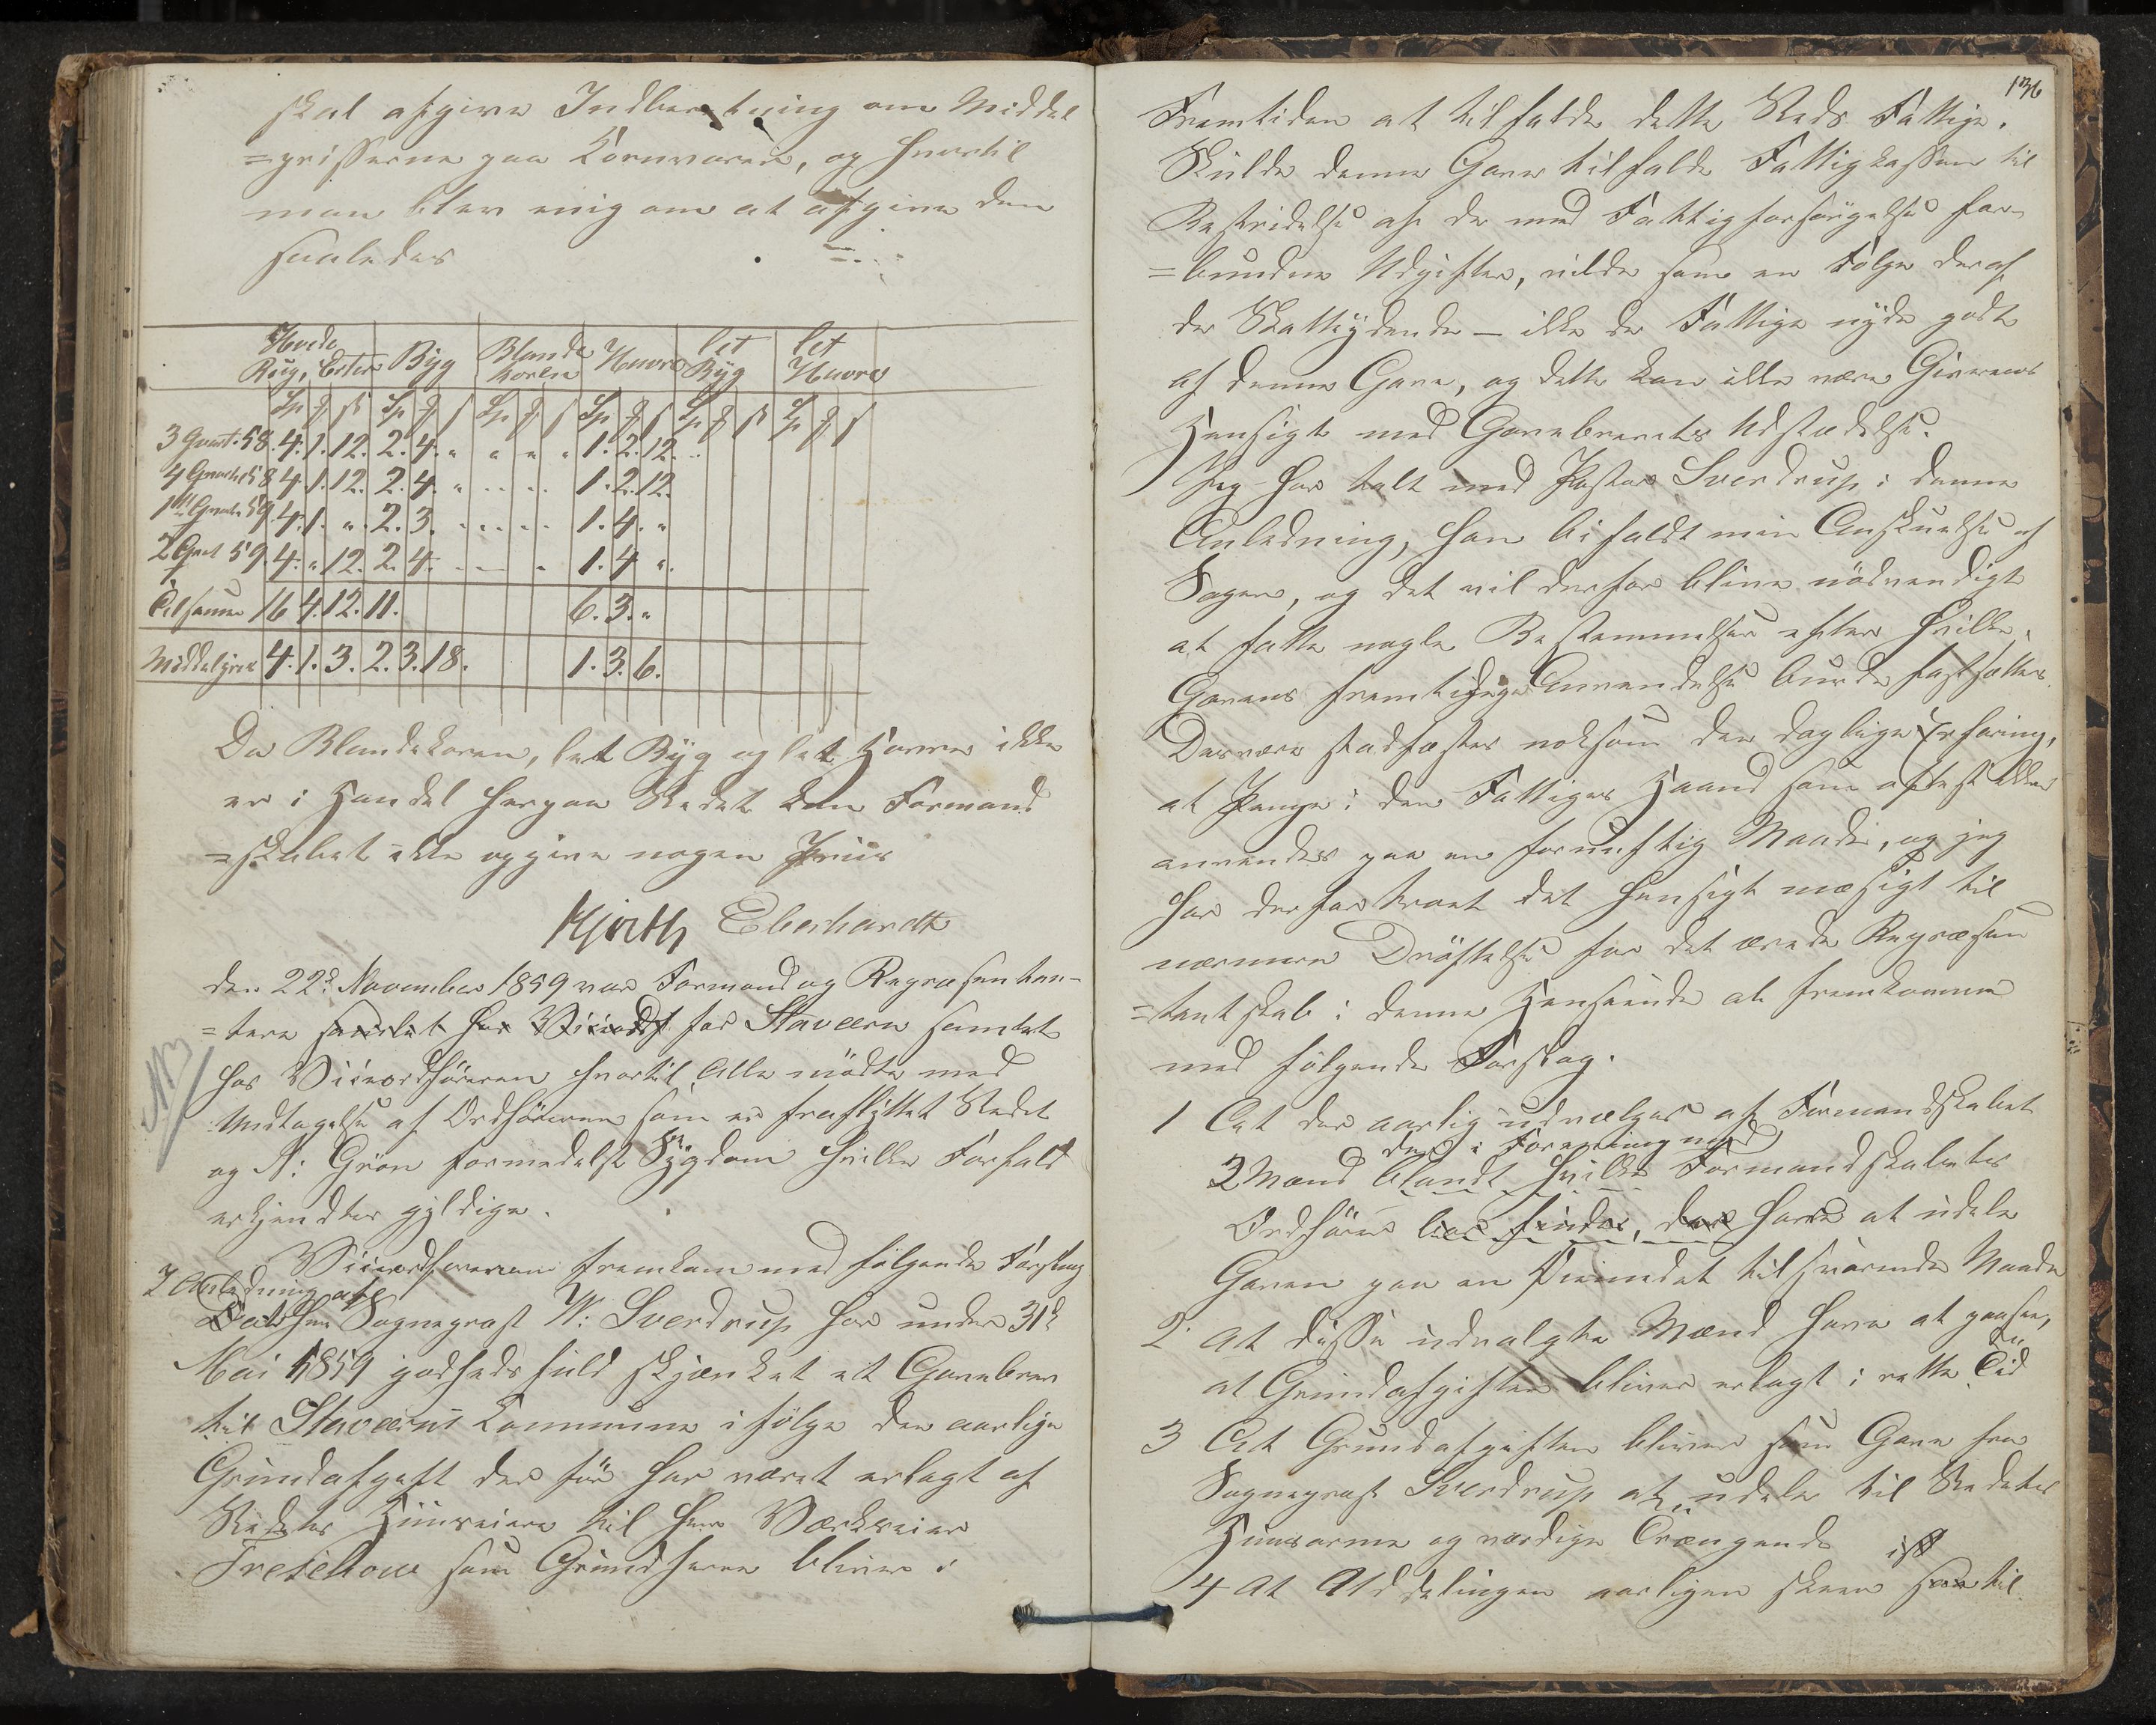 skal afgive Indberetning om Middel
=prisserne paa Kornvarer, og hvortil
man blev enig om at afgive den
saaledes
Hvede Rug, Erter Byg Blandekorn Havre let Byg let Havre
Sp ß Sp ß Sp ß Sp ß Sp ß Sp ß
3 Qvart. 58. 4. 1. 12. 2. 4. " " " " 1. 2. 12. "
4 Qvart 58 4. 1. 12. 2. 4. " " " " 1. 2. 12.
1ste Qvart 59. 4. 1. " 2. 3. " " " " 1. 4. "
2 Qvart 59. 4. " 12. 2. 4. " " " 1. 4 ".
Tilsamen 16 4. 12. 11. 6. 3. "
Middelpris 4. 1. 3. 2. 3. 18. 1. 3. 6.
Da Blandekorn, let Byg og let Havre ikke
er i Handel herpaa Stedet kan Formand
=skabet ikke opgive nogen Priis
Hjorth Eberhardt
den 22d November 1859 var Formand og Repræsentan-
=tere samlet hos for Stavern samlet
hos Viceordföreren hvortil Alle mödte med
Undtagelse af Ordföreren som er fraflyttet Stedet
og N: Grön formedelst Sygdom hvilke Forfald
erkjendtes gyldige.
Viceordföreren fremkom med fölgende Forslag
I Anledning af
at Herr Sogneprest W: Sverdrup har under 31d
Mai 1859 godhedsfuld skjænket et Gavebrev
til Staværns Kommune i fölge den aarlige
Grundafgift der för har været erlagt af
Stedets Huuseiere til Herr Værkseier
Treschow som Grundherre bliver i
136
Fremtiden at tilfalde dette Steds Fattige.
Skulde denne Gave tilfalde Fattigkassen til
Bestridelse af de med Fattigforsörgelse for-
=bundne Udgifter, vilde som en Fölge deraf
de Skatteydende – ikke de Fattige nyde godt
af denne Gave, og dette kan ikke være Giverens
Hensigt med Gavebrevets Udstædelse.
Jeg har talt med Pastor Sverdrup i denne
Anledning, han bifaldt min Anskuelse af
Sagen, og det vil derfor blive nödvendigt
at fatte nogle Bestemmelser efter hvilke
Gavens fremtidige Anvendelse burde fastsættes.
Desværre stadfæstes noksom den daglige Erfaring,
at Penge i den Fattiges Haand som oftest ikke
anvendes paa en fornuftig Maade, og jeg
har derfor troet det hensigtmæsigt til
nærmere Dröftelse for det ærede Repræsen
=tantskab i denne Henseende at fremkomme
med fölgende Forslag.
1 At der aarlig udvælges af Formandskabet
der i Forening med
2 Mænd blandt hvilke Formandskabets
Ordförer bör findes, der have at udele
Gaven paa en Öiemedet tilsvarende Maade
2. at disse udvalgte Mænd have at paasee,
at Grundafgiften bliver erlagt i rette Tid
3 At Grundafgiften bliver som Gave fra
Sogneprest Sverdrup at udele til Stedets
Huusarme og værdige Trængende
4 at Uddelingen aarligen skeer til